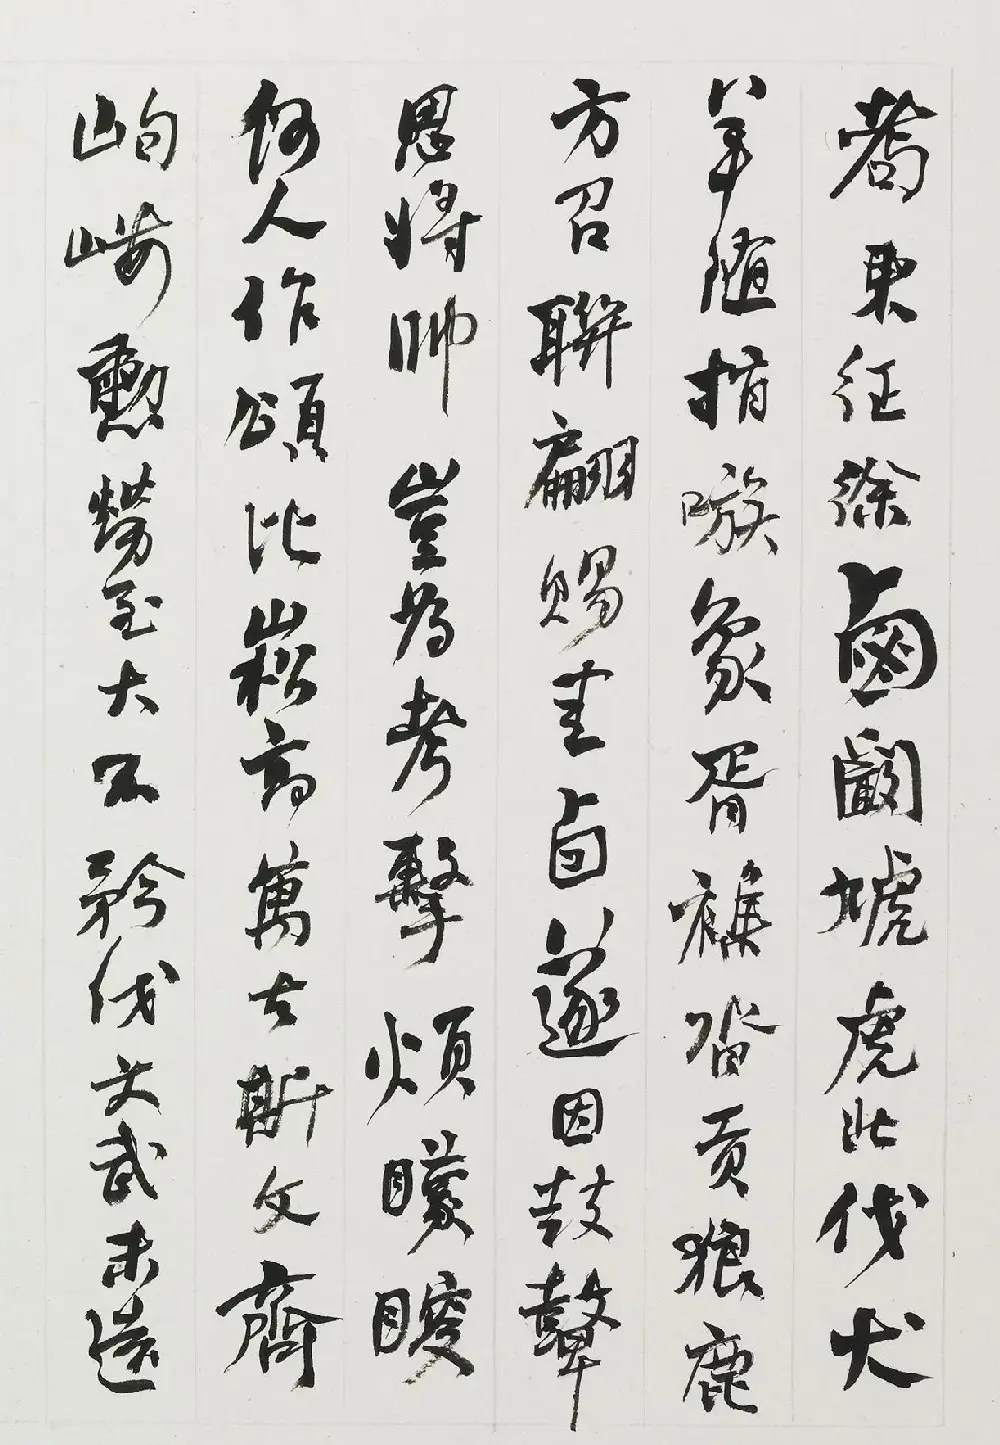 耇東征徐鹵闞虓虎北伐犬
戎隨指嗾象胥襍沓貢狼鹿
方召聯翩賜圭卣遂因鼓鼙
思將帥豈為考擊煩矇瞍
何人作頌比崧高萬古斯文齊
岣嶁勳勞至大不矜伐文武未遠